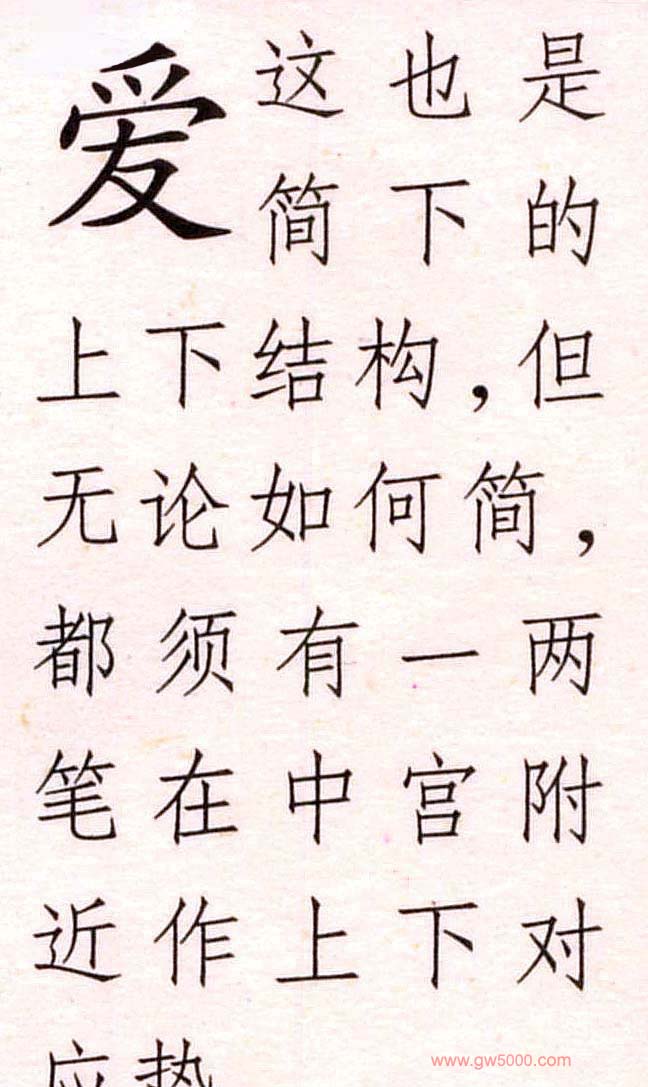 爱
这也是
简下的
上下结构，但
无论如何简，
都须有一两
笔在中宫附
近作上下对
应势
www.gw5000.com